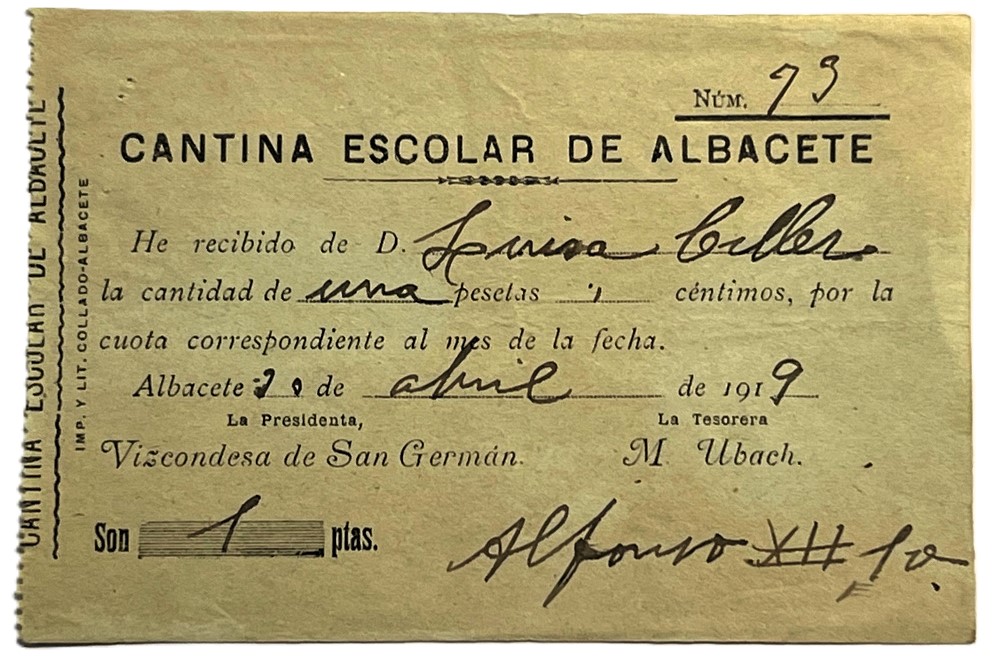 NÚM. 73
CANTINA ESCOLAR DE ALBACETE
He recibido de D. Luisa Celler
la cantidad de una pesetas " céntimos, por la
cuota correspondiente al mes de la fecha.
Albacete 30 de abril de 1919
La Presidenta, La Tesorera
Vizcondesa de San Germán. M. Ubach.
Son 1 ptas.
Alfonso XII 10.
IMP. Y LIT. COLLADO-ALBACETE
CANTINA ESCOLAR DE ALBACETE